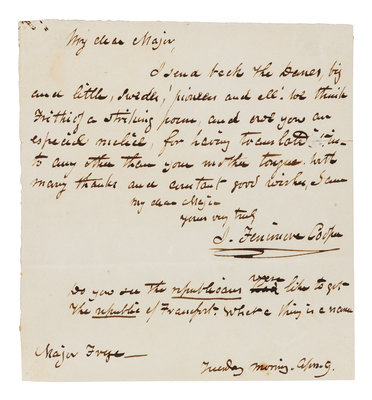 My dear Major,
I send back the Danes, big
and little, Swedes, pioneers and all. We think
Frithiof a striking poem, and owe you an
especial malice, for having translated it in-
to any other than your mother tongue. With
many thanks and constant good wishes, I am
my dear Major
yours very truly
J. Fenimore Cooper
Do you see the republicans were like to get
the republic of Francfort What a thing is a name
Major Frye—
Tuesday morning. April 9.